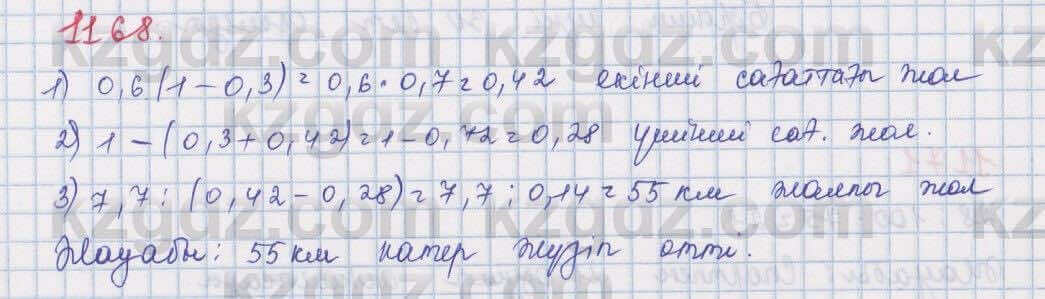 1168.
1) 0,6 (1 - 0,3) = 0,6 · 0,7 = 0,42 екінші сағаттағы жол
2) 1 - (0,3 + 0,42) = 1 - 0,72 = 0,28 үшінші сағ. жол.
3) 7,7 : (0,42 - 0,28) = 7,7 : 0,14 = 55 км жалпы жол
Жауабы: 55 км катер жүзіп өтті.